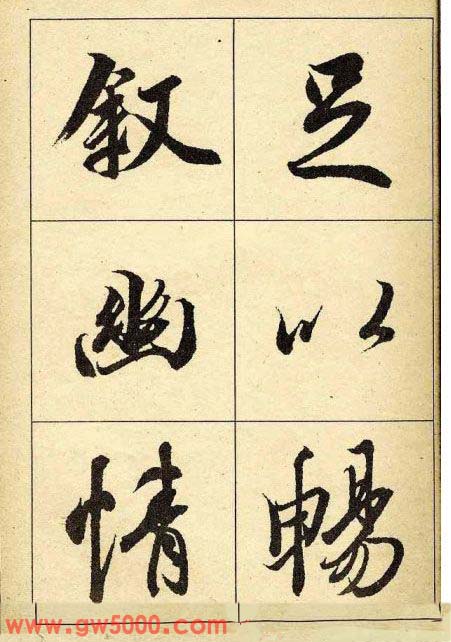 足以暢
敘幽情
www.gw5000.com